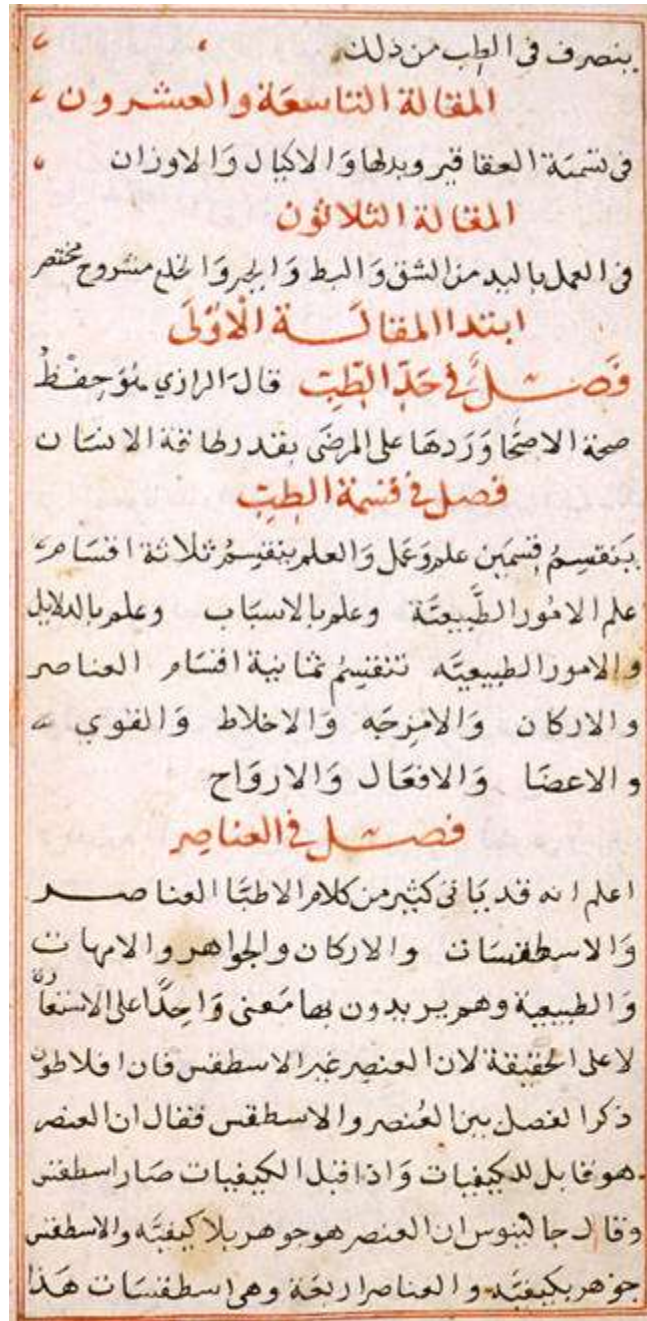 يتصرف في الطب من ذلك
المقالة التاسعة والعشرون
في تسمية العقاقير وبدلها وَالاكيال وَالاوزان
المقالة الثلاثون
في العمل باليد من الشق وَالبط وَالجبر وَالخلع مشروح مختصر
ابتدا المقالَـة الْاوُلَى
فَصـــل في حَدّ الطّبّ قال الرازي هوَ حِفْظُ
صحة الاصحّا وَرَدهَا على المرضَى بقدر طاقة الانسَان
فصل في قسمة الطبّ
يَنقسِمُ قِسمَين علم وَعمَل وَالعلم ينقسِمُ ثلاثة اقسَام
علم الامُور الطَّبيعيَّة وعلم بالاسبَاب وعلم بالدلايل
والامور الطبيعيَّه تنقسِمُ ثمانية اقسَام العناصر
والاركان وَالامزجَه وَالاخلاط وَالقوي
والاعضَا وَالافعَال وَالاروَاح
فصـــل في العناصِر
اعلم انه قد يَاتى كثير من كلام الاطبَّا العناصـــر
وَالاسطقسَات والاركان والجواهر والامهات
وَالطبيعية وهم يريدون بها مَعنى وَاحِدًا على الاستعارة
لا على الحقيقة لان العنصِر غير الاسطقس فان افلاطون
ذكر الفصل بين العُنصر والاسطقس فقال ان العنصر
هو قابل للكيفيات وَاذا قبل الكيفيات صَار اسطقس
وقال جالينوس ان العنصر هو جوهر بلا كيفيَّه والاسطقس
جوهر بكيفيَّه والعناصر اربعَة وهى اسطقسَات هَذا